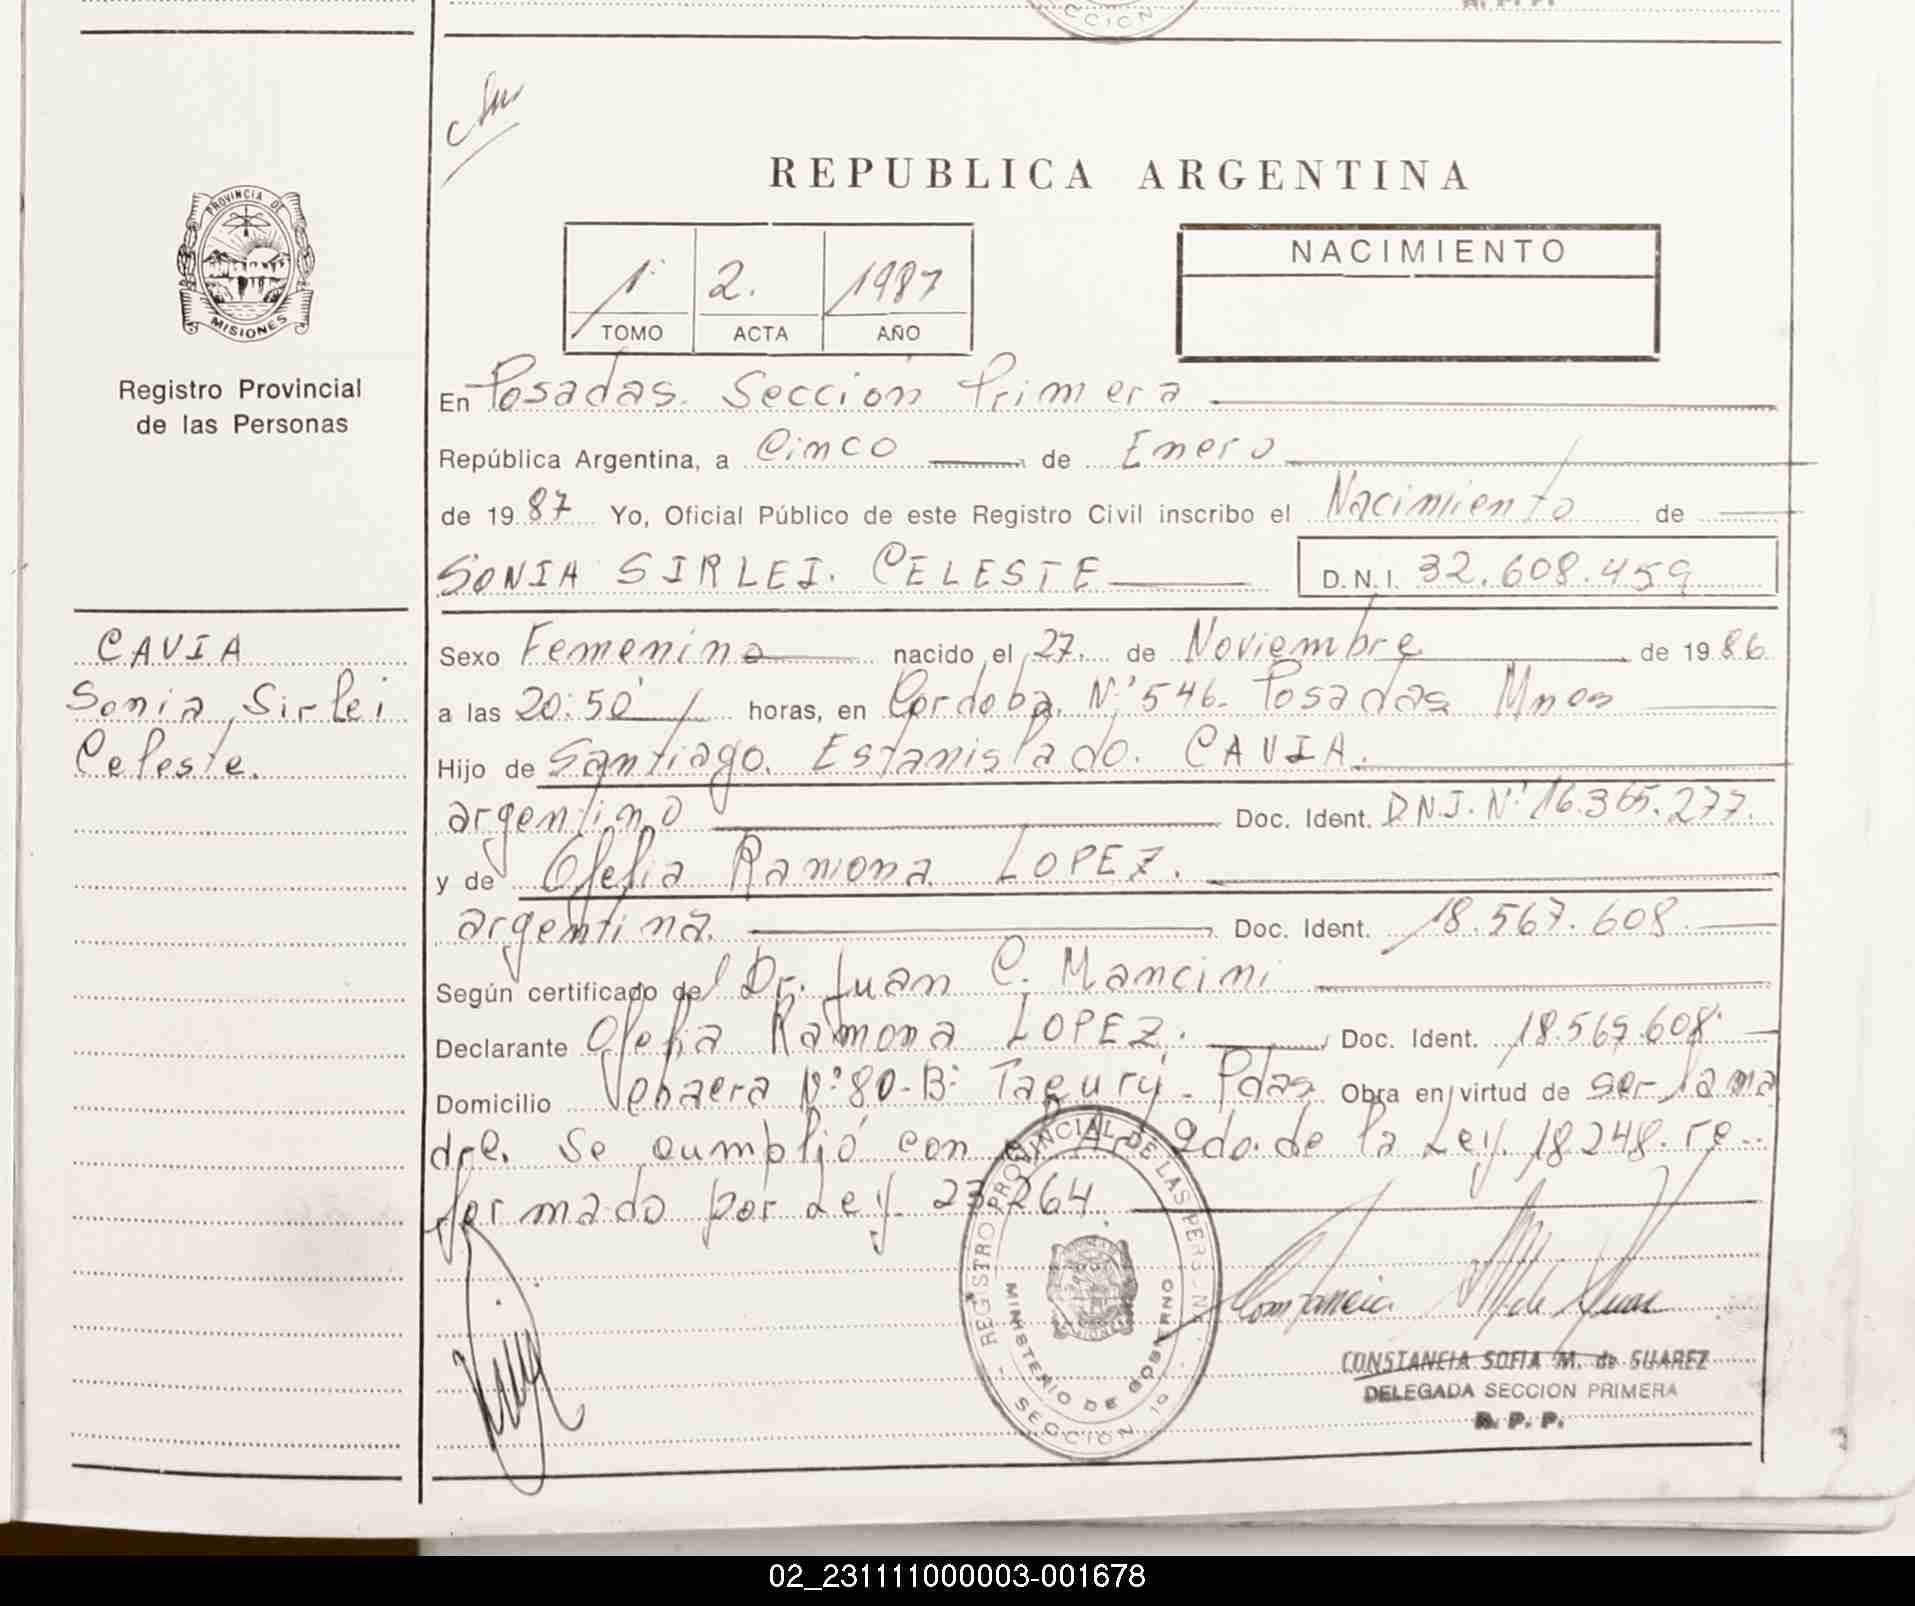 PROVINCIA DE
MISIONES
Registro Provincial
de las Personas
CAVIA
Sonia Sirlei
Celeste.
REPUBLICA ARGENTINA
1º 2. 1987
TOMO ACTA AÑO
NACIMIENTO
En Posadas. Sección Primera
República Argentina, a Cinco de Enero
de 1987 Yo, Oficial Público de este Registro Civil inscribo el Nacimiento de
SONIA SIRLEI. CELESTE D.N.I. 32.608.459
Sexo Femenino nacido el 27. de Noviembre de 1986
a las 20:50 horas, en Córdoba. Nº 546. Posadas Mnes
Hijo de Santiago. Estanislado. CAVIA.
argentino Doc. Ident. D.N.I. Nº 16.365.277.
y de Ofelia Ramona LOPEZ.
argentina. Doc. Ident. 18.567.608
Según certificado del Dr. Juan C. Mancini
Declarante Ofelia Ramona LOPEZ. Doc. Ident. 18.567.608
Domicilio Nº 80-Bº Pdas Obra en virtud de ser la ma
dre. Se cumplió con el Art 2do. de la Ley. 18248. re
formado por Ley. 23.264.
REGISTRO PROVINCIAL DE LAS PERS.
MINISTERIO DE GOBIERNO
SECCION 1a
CONSTANCIA SOFIA M. de SUAREZ
DELEGADA SECCION PRIMERA
R. P. P.
02_231111000003-001678